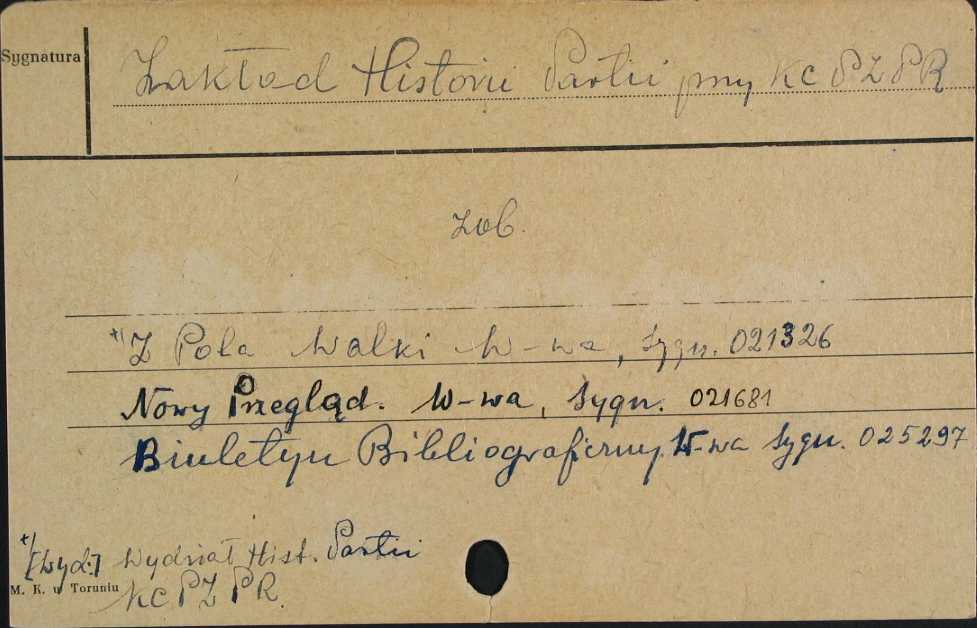 Sygnatura
Zakład Historii Partii przy KC PZPR
zob.
*) Z Pola Walki W-wa, sygn. 021326
Nowy Przegląd. W-wa, sygn. 021681
Biuletyn Bibliograficzny W-wa sygn. 025297
*) [wyd:] Wydział Hist. Partii
KC PZPR.
M. K. w Toruniu